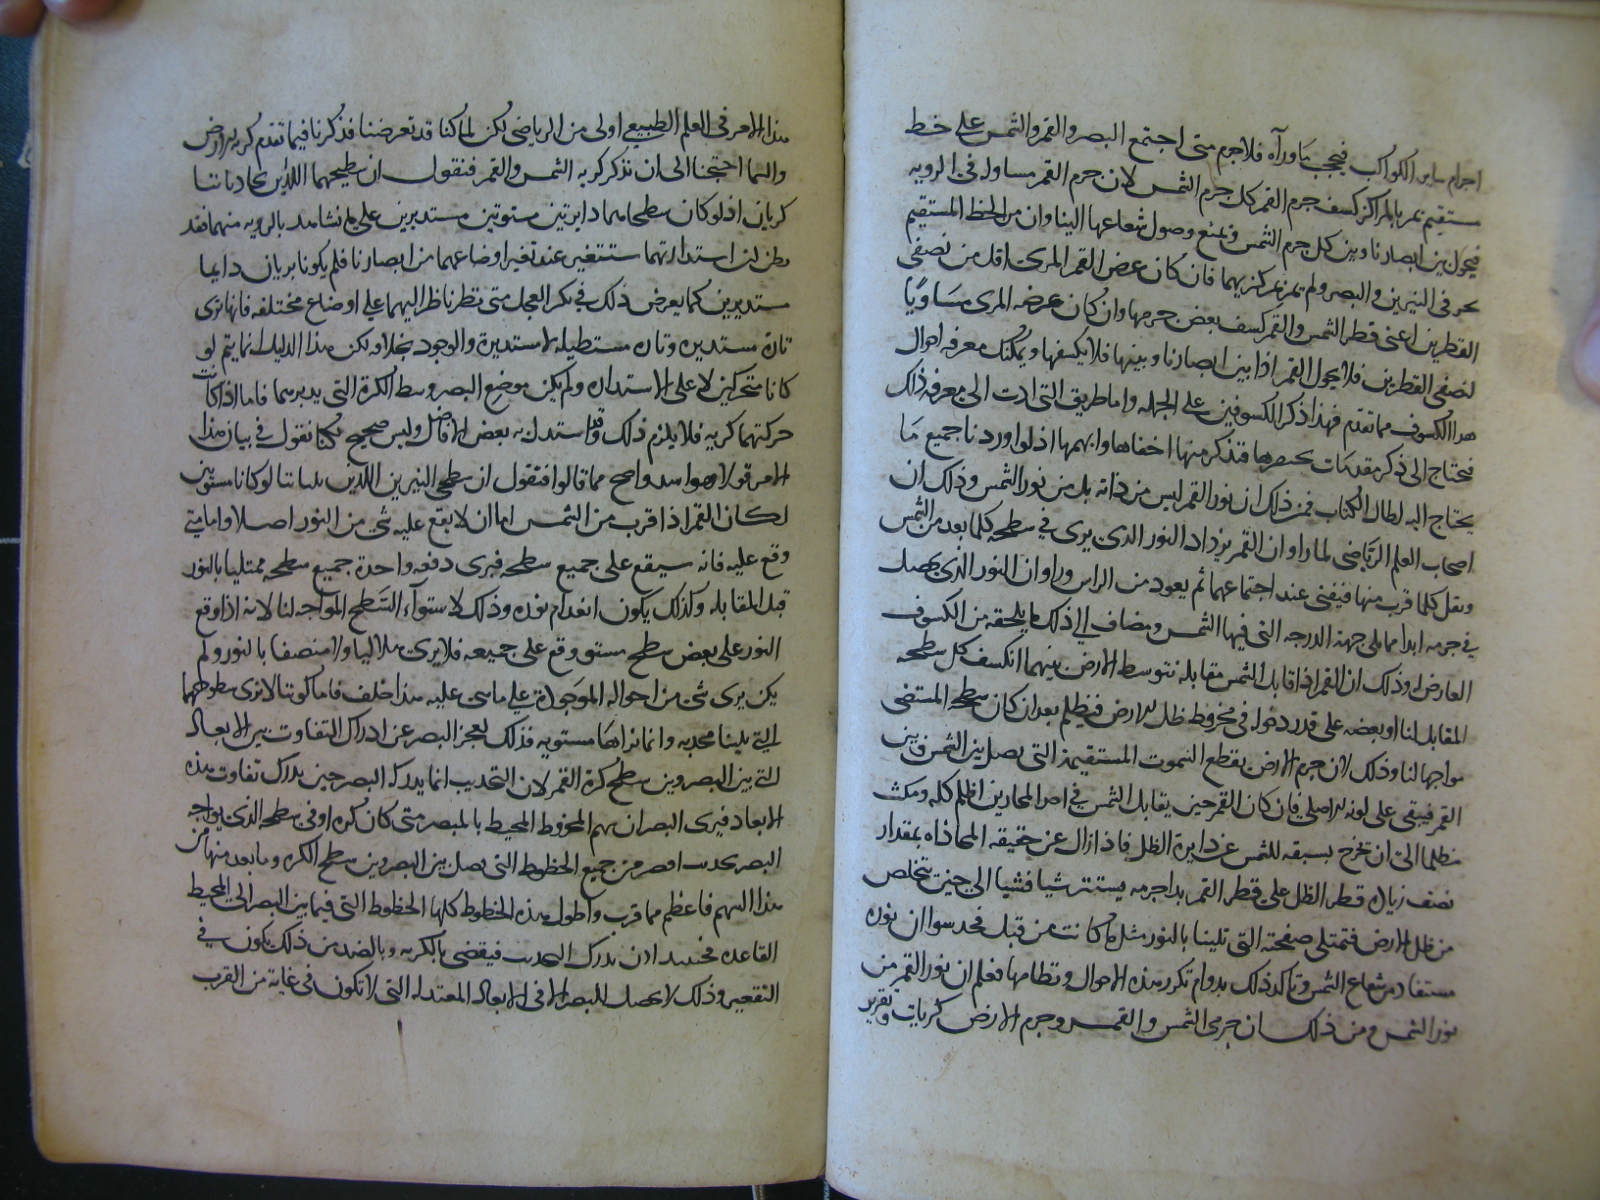 اجرام ساير الكواكب فيحجب ما ورآه فلا جرم متى اجتمع البصر والقمر والشمس على خط
مستقيم يمر بالمراكز كسف جرم القمر كل جرم الشمس لان جرم القمر مساو له في الرويه
فيحول بين ابصارنا وبين كل جرم الشمس فيمنع وصول شعاعها الينا وان مر الخط المستقيم
بحرفي النيرين والبصر ولم يمر بمركزيهما فان كان عرض القمر المرى اقل من نصفى
القطرين اعنى قطر الشمس والقمر كسف بعض جرمها وان كان عرضه المرى مساويًا
لنصفى القطرين فلا يحول القمر اذا بين ابصارنا وبينها فلا يكسفها ويمكنك معرفه احوال
هذا الكسوف مما تقدم فهذا ذكر الكسوفين على الجمله واما طريق التى ادت الى معرفه ذلك
فيحتاج الى ذكر مقدمات يحصرها فنذكر منها اخفاها وابهمها اذ لو اوردنا جميع ما
يحتاج اليه لطال الكتاب فمن ذلك ان نور القمر ليس من ذاته بل من نور الشمس وذلك ان
اصحاب العلم الرياضى لما راوا ان القمر يزداد النور الذى يرى في سطحه كلما بعد من الشمس
ويقل كلما قرب منها فيفنى عند اجتماعهما ثم يعود من الراس وراوا ان النور الذى يحصل
في جرمه ابدا مما يلى جهة الدرجه التى فيها الشمس ومضاف الى ذلك ما يلحقه من الكسوف
العارض له وذلك ان القمر اذا قابل الشمس مقابله تتوسط الارض بينهما انكسف كل سطحه
المقابل لنا او بعضه على قدر دخوله في مخروط ظل الارض فيظلم بعد ان كان سطحه المستضى
مواجها لنا وذلك لان جرم الارض يقطع السموت المستقيمة التى يصل بين الشمس وبين
القمر فيبقى على لونه الاصلى فان كان القمر حين يقابل الشمس في احد المحازين اظلم كله ومكث
مظلما الى ان يخرج بسبقه للشمس عن دايرة الظل فاذا زال عن حقيقه المحاذاه بمقدار
نصف زياده قطر الظل على قطر القمر بدا جرمه يستنير شيا فشيا الى حين يتخلص
من ظل الارض فتمتلى صفحته التى تلينا بالنور مثل ما كانت من قبل فحدسوا ان نوره
مستفاد من شعاع الشمس وتاكد ذلك بدوام تكرر هذه الاحوال ونظامها فعلم ان نور القمر من
نور الشمس ومن ذلك ان جرمى الشمس والقمر وجرم الارض كريات وتقرير
هذا الامر في العلم الطبيعي اولى من الرياضى لكن لما كنا قد تعرضنا فذكرنا فيما تقدم كريه الارض
والسما احتجنا الى ان نذكر كريه الشمس والقمر فنقول ان سطحيهما اللذين يحاذياننا
كريان اذ لو كان سطحاهما دايرتين مستويتين مستديرتين على ما نشاهد بالرويه منهما فقد
يظن ان استدارتهما ستتغير عند تغير اوضاعهما من ابصارنا فلم يكونا يريان دايما
مستديرين كما يعرض ذلك في بكر العجل متى نظر ناظر اليهما على اوضاع مختلفه فانها ترى
تارة مستديره وتاره مستطيله لا مستديرة والوجود بخلافه ولكن هذا الدليل انما يتم لو
كانا متحركين لا على الاستداره ولم يكن موضع البصر وسط الكرة التى يديرهما فاما اذا كانت
حركتهما كريه فلا يلزم ذلك وقد استدل به بعض الافاضل وليس صحيح لكنا نقول في بيان هذا
الامر قولا هو اسد واصح مما قالوا فنقول ان سطحى النيرين اللذين يلياننا لو كانا مستويين
لكان القمر اذا قرب من الشمس اما ان لا يقع عليه شى من النور اصلا واما متى
وقع عليه فانه سيقع على جميع سطحه فيرى دفعه واحدة جميع سطحه ممتليا بالنور
قبل المقابله وكذلك يكون انعدام نوره وذلك لاستوآء السَّطح المواجه لنا لانه اذا وقع
النور على بعض سطح مستو وقع على جميعه فلا يرى هلاليا ولا منصفا بالنور ولم
يكن يرى شى من احواله الموجودة على ما هى عليه هذا خلف فاما كوننا لا نرى سطوحهما
التى تلينا محدبه وانما نراها مستويه فذلك لعجز البصر عن ادراك التفاوت بين الابعاد
التى بين البصر وبين سطح كرة القمر لان التحديب انما يدركه البصر حين يدرك تفاوت هذه
الابعاد فيرى البصر ان سهم المخروط المحيط بالمبصر متى كان كره او في سطحه الذى يواجه
البصر تحدب اقصر من جميع الخطوط التى يصل بين البصر وبين سطح الكره وما بعد منها من
هذا السهم فاعظم مما قرب واطول هذه الخطوط كلها الخطوط التى فيما بين البصر الى المحيط
القاعده فحينيذ اذن يدرك التحدب فيقضى بالكريه وبالضد من ذلك يكون في
التقعير وذلك لا يحصل للبصر الا في الابعاد المعتدله التى لا تكون في غاية من القرب